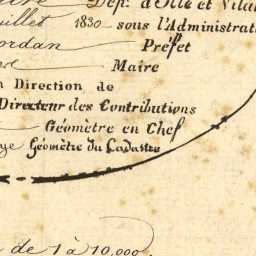 Dép. d'Ille et Vila
uillet 1830 sous l'Administrat
ordan Préfet
Maire
n Direction de
Directeur des Contributions
Géomètre en Chef
ye Géomètre du Cadastre
de 1 à 10,000.